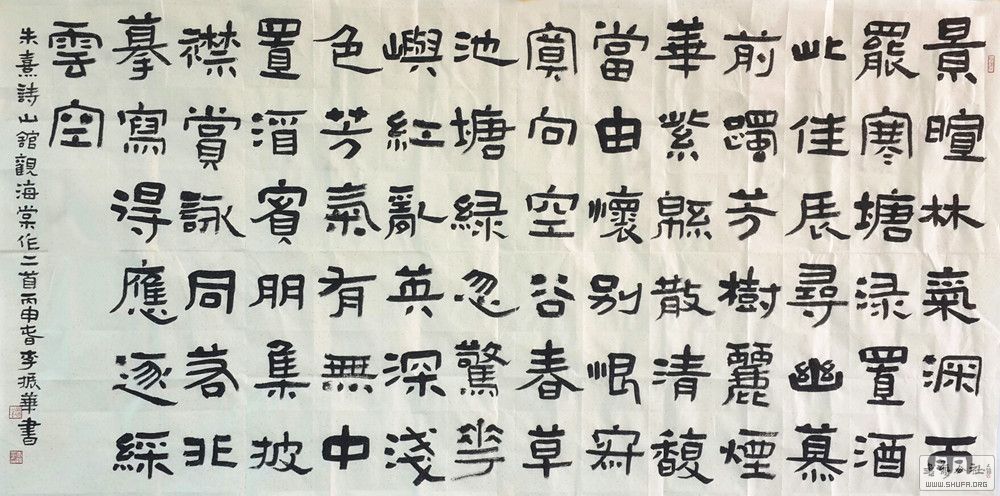 景暄林氣深雨
罷寒塘淥置酒
此佳辰尋幽慕
前躅芳樹麗煙
華紫緜散清馥
當由懷別恨寂
寞向空谷春草
池塘綠忽驚花
嶼紅亂英深淺
色芳氣有無中
置酒賓朋集披
襟賞詠同若非
摹寫得應逐綵
雲空
朱熹詩山館觀海棠作二首丙申春李振華書
WWW.SHUFA.ORG